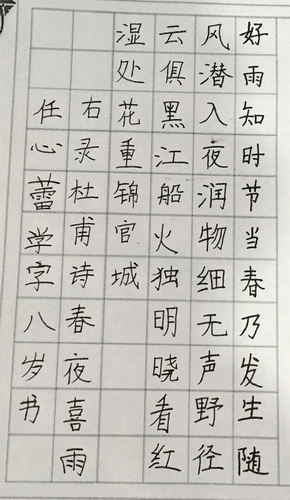 好雨知时节当春乃发生随
风潜入夜润物细无声野径
云俱黑江船火独明晓看红
湿处花重锦官城
右录杜甫诗春夜喜雨
任心蕾学字八岁书